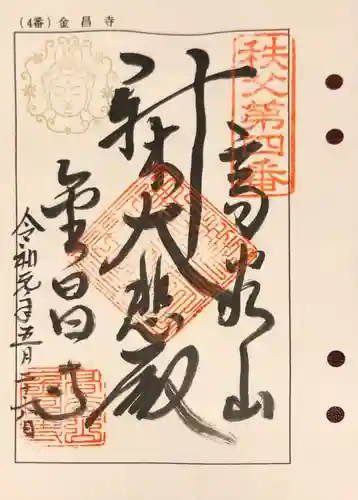 (4番) 金昌寺
秩父第四番
高谷山
新木大悲殿
金昌寺
令和元年五月二十六日